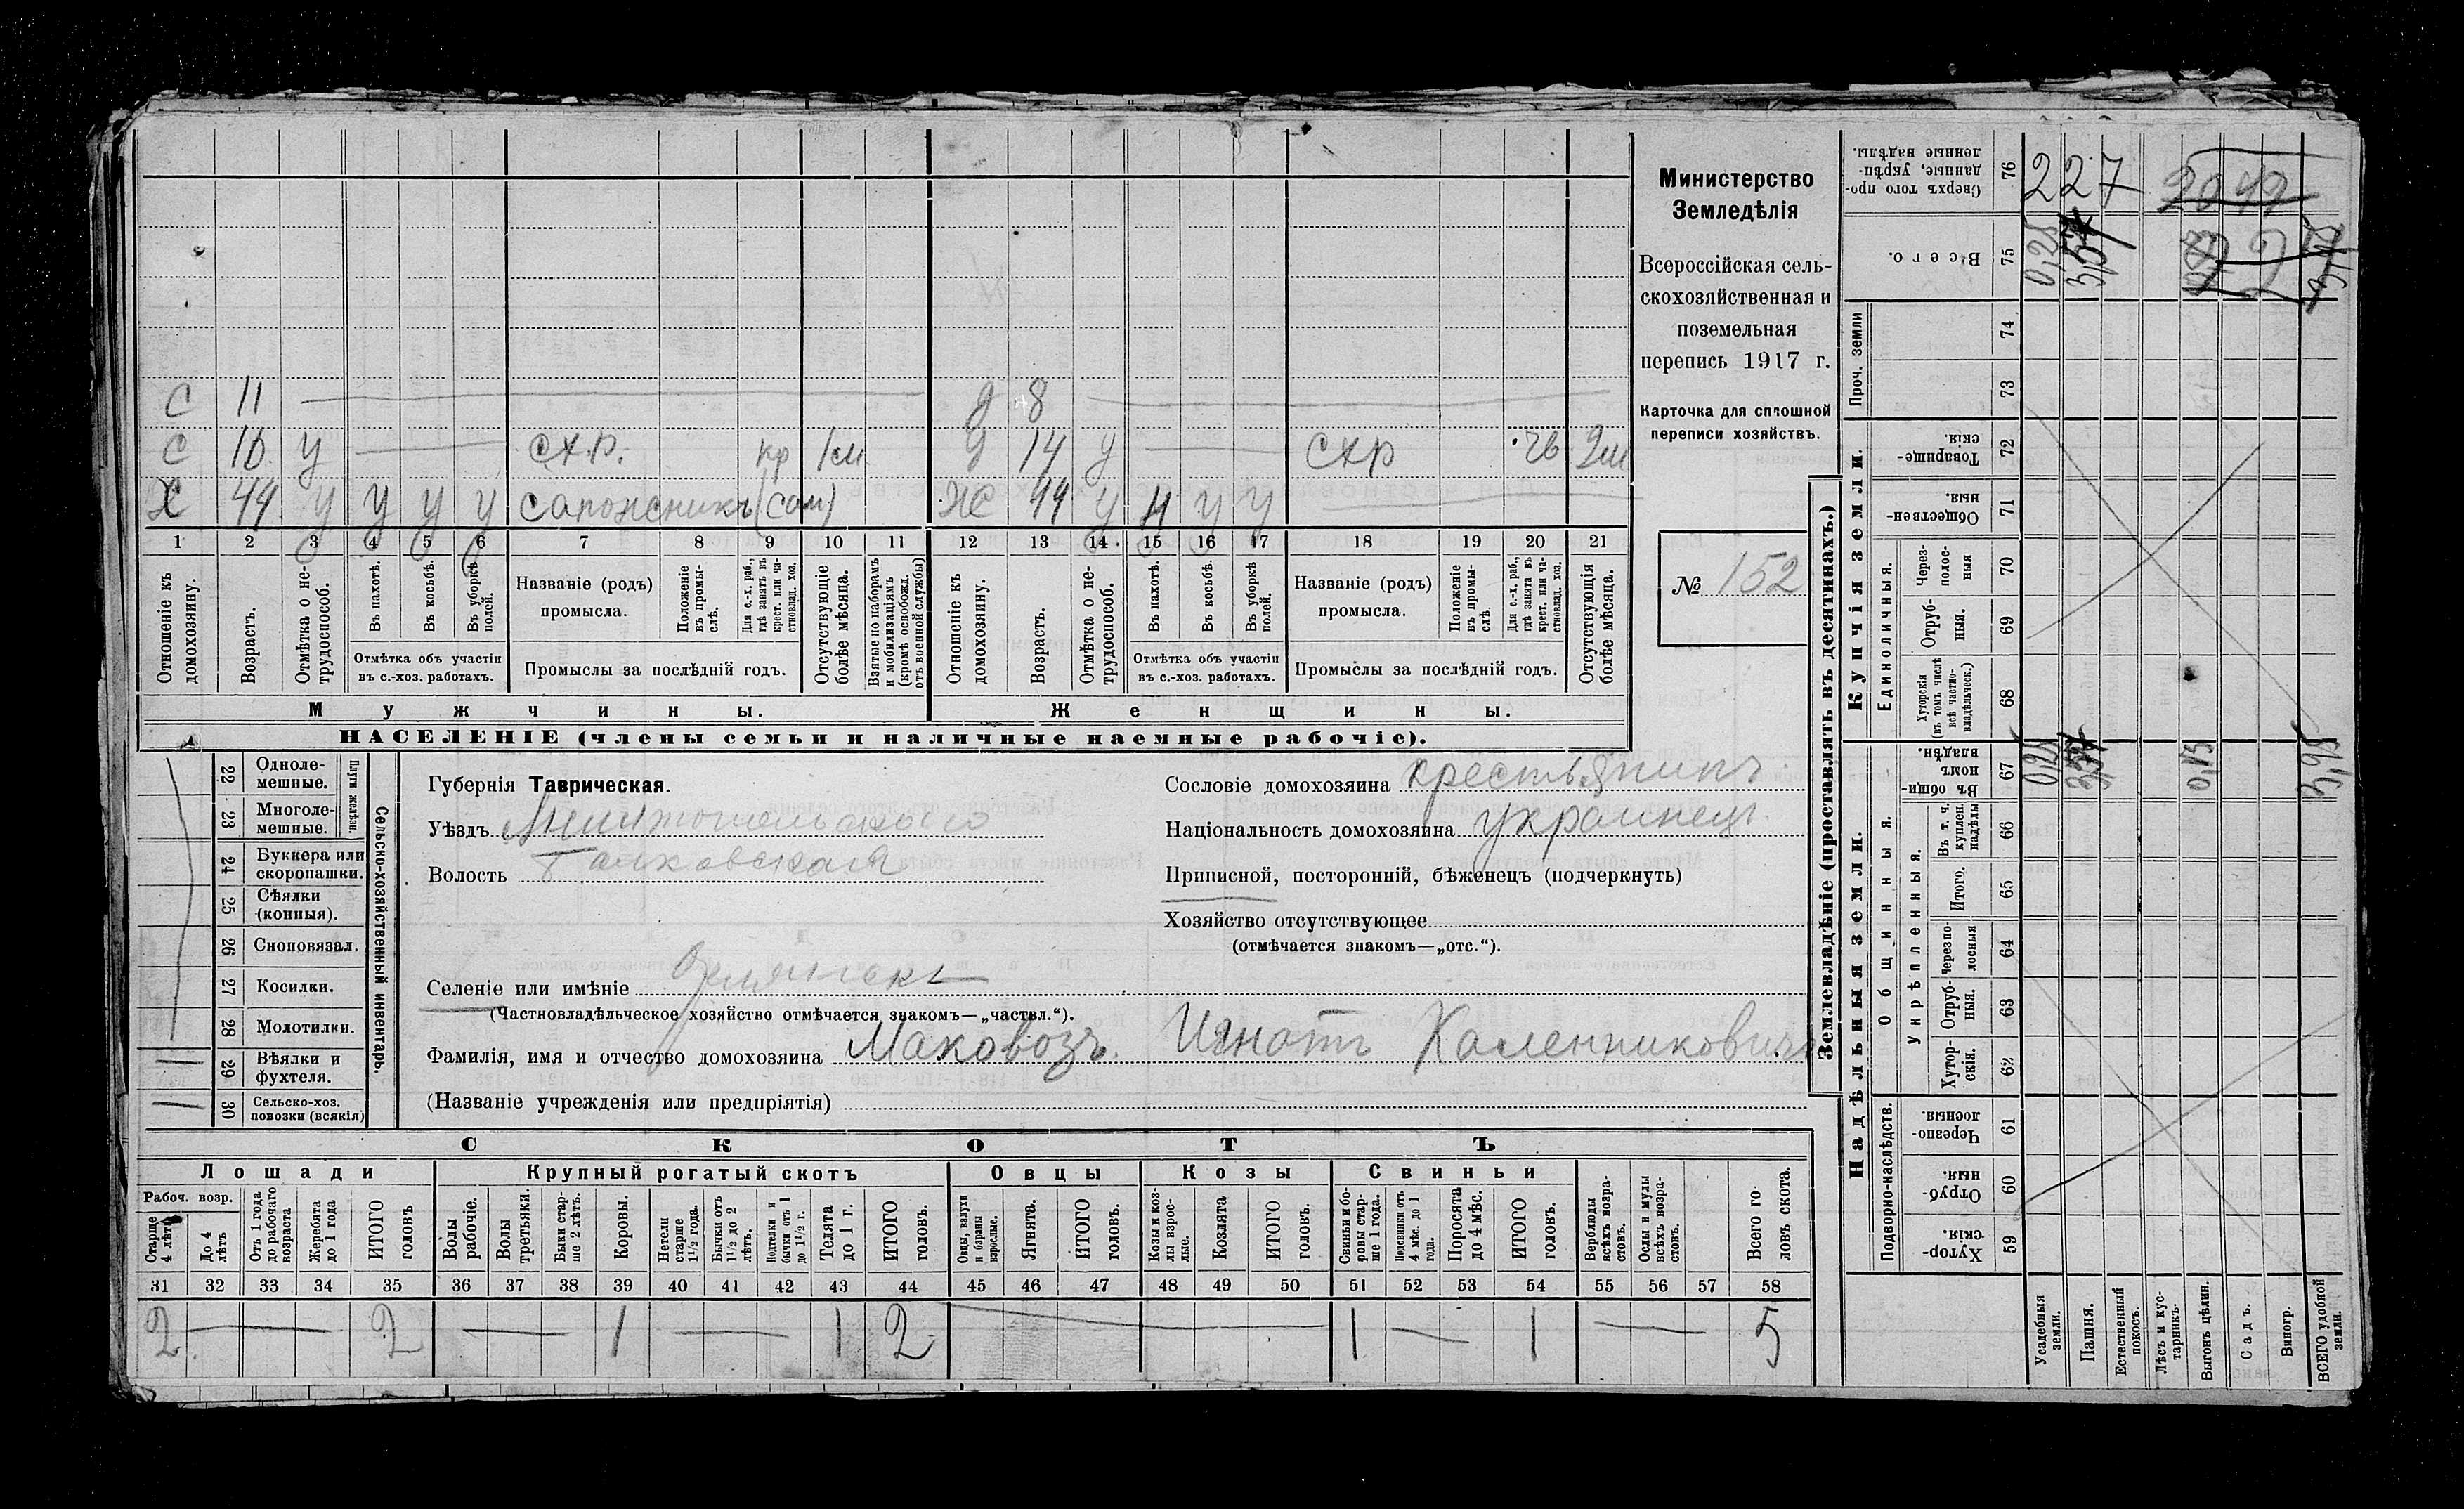 С 11 — д 8 —
С 16 у — СХР. кр 1м д 14 у — СХР чв 2м
Х 44 у у у у сапожникъ (сам) Ж 44 у у у у
1 2 3 4 5 6 7 8 9 10 11 12 13 14 15 16 17 18 19 20 21
Отношеніе къ домохозяину.
Возрастъ.
Отмѣтка о нетрудоспособ.
Въ пахотѣ.
Въ косьбѣ.
Въ уборкѣ полей.
Отмѣтка объ участіи
въ с.-хоз. работахъ.
Названіе (родъ)
промысла.
Положеніе въ промыслѣ.
Для с.-х. раб., гдѣ занятъ въ крест. или частновлад. хоз.
Промыслы за послѣдній годъ.
Отсутствующіе болѣе мѣсяца.
Взятые по наборамъ и мобилизаціямъ (кромѣ освобожд. отъ военной службы)
Отношеніе къ домохозяину.
Возрастъ.
Отмѣтка о нетрудоспособ.
Въ пахотѣ.
Въ косьбѣ.
Въ уборкѣ полей.
Отмѣтка объ участіи
въ с.-хоз. работахъ.
Названіе (родъ)
промысла.
Положеніе въ промыслѣ.
Для с.-х. раб., гдѣ занята въ крест. или частновлад. хоз.
Промыслы за послѣдній годъ.
Отсутствующія болѣе мѣсяца.
Мужчины.
Женщины.
НАСЕЛЕНІЕ (члены семьи и наличные наемные рабочіе).
Министерство
Земледѣлія
Всероссійская сель-
скохозяйственная и
поземельная
перепись 1917 г.
Карточка для сплошной
переписи хозяйствъ.
№ 152
22 Одноле-
мешные.
23 Многоле-
мешные.
Плуги желѣзн.
24 Буккера или
скоропашки.
25 Сѣялки
(конныя).
26 Сноповязал.
27 Косилки.
28 Молотилки.
29 Вѣялки и
фухтеля.
30 Сельско-хоз.
повозки (всякія)
Сельско-хозяйственный инвентарь.
Губернія Таврическая.
Уѣздъ Мелитопольскаго
Волость
Сословіе домохозяина крестьянинъ
Національность домохозяина украинецъ.
Приписной, посторонній, бѣженецъ (подчеркнуть)
Хозяйство отсутствующее
(отмѣчается знакомъ—„отс.“).
Селеніе или имѣніе Орлянскъ
(Частновладѣльческое хозяйство отмѣчается знакомъ—„частвл.“).
Фамилія, имя и отчество домохозяина Маковозъ. Игнатъ Каленниковичъ
(Названіе учрежденія или предпріятія)
СКОТЪ
Лошади Крупный рогатый скотъ Овцы Козы Свиньи
Рабоч. возр.
Старше 4 лѣтъ
До 4 лѣтъ
Отъ 1 года до рабочаго возраста
Жеребята до 1 года
ИТОГО головъ
Волы рабочіе.
Волы третьяки.
Быки старше 2 лѣтъ.
Коровы.
Нетели старше 1½ года.
Бычки отъ 1½ до 2 лѣтъ.
Подтелки и бычки отъ 1 до 1½ г.
Телята до 1 г.
ИТОГО головъ.
Овцы, валухи и бараны взрослые.
Ягнята.
ИТОГО головъ.
Козы и козлы взрослые.
Козлята
ИТОГО головъ.
Свиньи и боровы старше 1 года.
Подсвинки отъ 4 мѣс. до 1 года.
Поросята до 4 мѣс.
ИТОГО головъ.
Верблюды всѣхъ возрастовъ.
Ослы и мулы всѣхъ возрастовъ.
Всего головъ скота.
31 32 33 34 35 36 37 38 39 40 41 42 43 44 45 46 47 48 49 50 51 52 53 54 55 56 57 58
2 — 2 — 1 — 1 2 — 1 — 1 — 5
Землевладѣніе (проставлять въ десятинахъ.)
Купчія земли.
Надѣльныя земли.
Сверхъ того проданные, укрѣпленные надѣлы. 76 227
Всего. 75 0,25
Проч. земли 74 73
Товарищескія. 72
Общественныя. 71
Единоличныя.
Черезполосныя 70
Отрубныя. 69
Хуторскія (въ томъ числѣ всѣ частновладѣльческ.) 68
Общинныя.
Въ общинномъ владѣн. 67 0,25 0,15 3,95
Укрѣпленныя.
Въ т. ч. куплен. надѣлы 66
Итого. 65
Черезполосныя 64
Отрубныя. 63
Хуторскія. 62
Подворно-наслѣдств.
Черезполосныя 61
Отрубныя. 60
Хуторскія. 59
Усадебныя земли.
Пашня.
Естественный покосъ.
Лѣсъ и кустарникъ.
Выгонъ цѣлин.
Садъ.
Виногр.
ВСЕГО удобной земли.